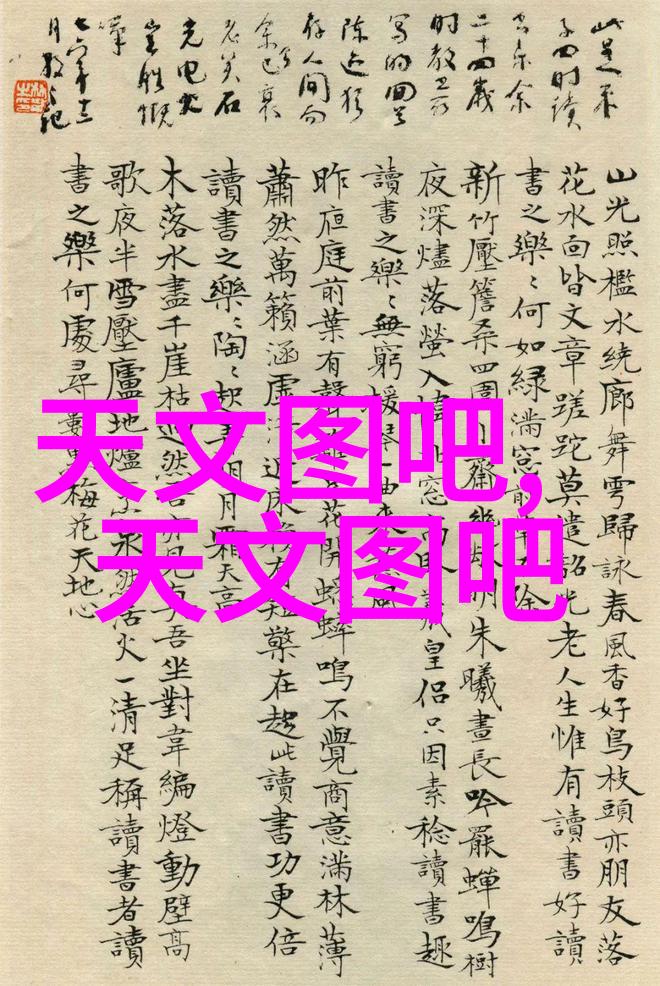 二十四歲
陈迹犹
存人间而
余已衰
老矣石
光电火
山光照檻水繞廊舞雩歸詠春風香好鳥枝頭亦朋友落
花水面皆文章蹉跎莫遣韶光老人生惟有讀書好讀
書之樂〻何如綠滿窓前草不除
新竹壓簷桑四圍小齋幽敞明朱曦晝長吟罷蟬鳴樹
夜深燼落螢入幃北窓高臥羲皇侶只因素稔讀書趣
讀書之樂〻無窮瑤琴一曲來薰風
昨夜庭前葉有聲籬豆花開蟋蟀鳴不覺商意滿林薄
蕭然萬籟涵虛清近床賴有短檠在趁此讀書功更倍
讀書之樂〻陶〻起弄明月霜天高
木落水盡千崖枯迥然吾亦見真吾坐對韋編燈動壁高
歌夜半雪壓廬地爐茶鼎烹活火一清足稱讀書者讀
書之樂何處尋數點梅花天地心
天文图吧,
天文图吧